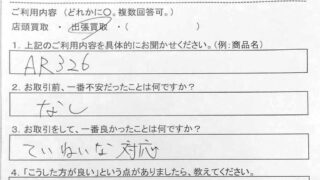 ご利用内容（どれかに○。複数回答可。）
店頭買取 ・ 出張買取 ・（ ）
1. 上記のご利用内容を具体的にお聞かせください。（例：商品名）
AR326
2. お取引前、一番不安だったことは何ですか？
なし
3. お取引をして、一番良かったことは何ですか？
ていねいな対応
4. 「こうした方が良い」という点がありましたら、教えてください。